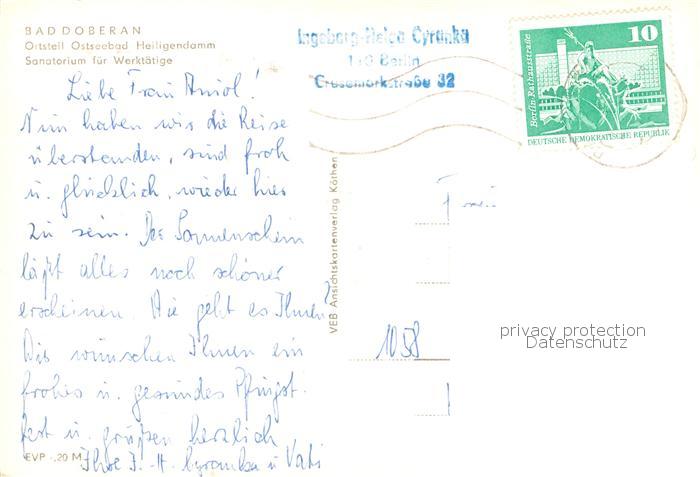 BAD DOBERAN
Ortsteil Ostseebad Heiligendamm
Sanatorium für Werktätige
Ingeborg-Helga Cyranka
110 Berlin
32
10
Berlin-Rathausstraße
DEUTSCHE DEMOKRATISCHE REPUBLIK
Liebe Frau Amiol!
Nun haben wir die Reise
überstanden, sind froh
u. glücklich, wieder hier
zu sein. Der Sonnenschein
läßt alles noch schöner
erscheinen. Wie geht es Ihnen?
Wir wünschen Ihnen ein
frohes u. gesundes Pfingst-
fest u. grüßen herzlich
Ihre I.-H. Cyranka u. Vati
EVP -,20 M
VEB Ansichtskartenverlag Köthen
Frau
1058
privacy protection
Datenschutz